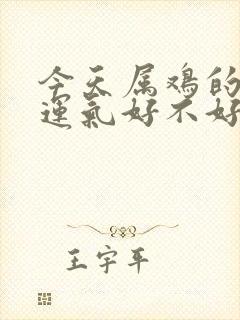 今天属鸡的
運氣好不好
王宇平